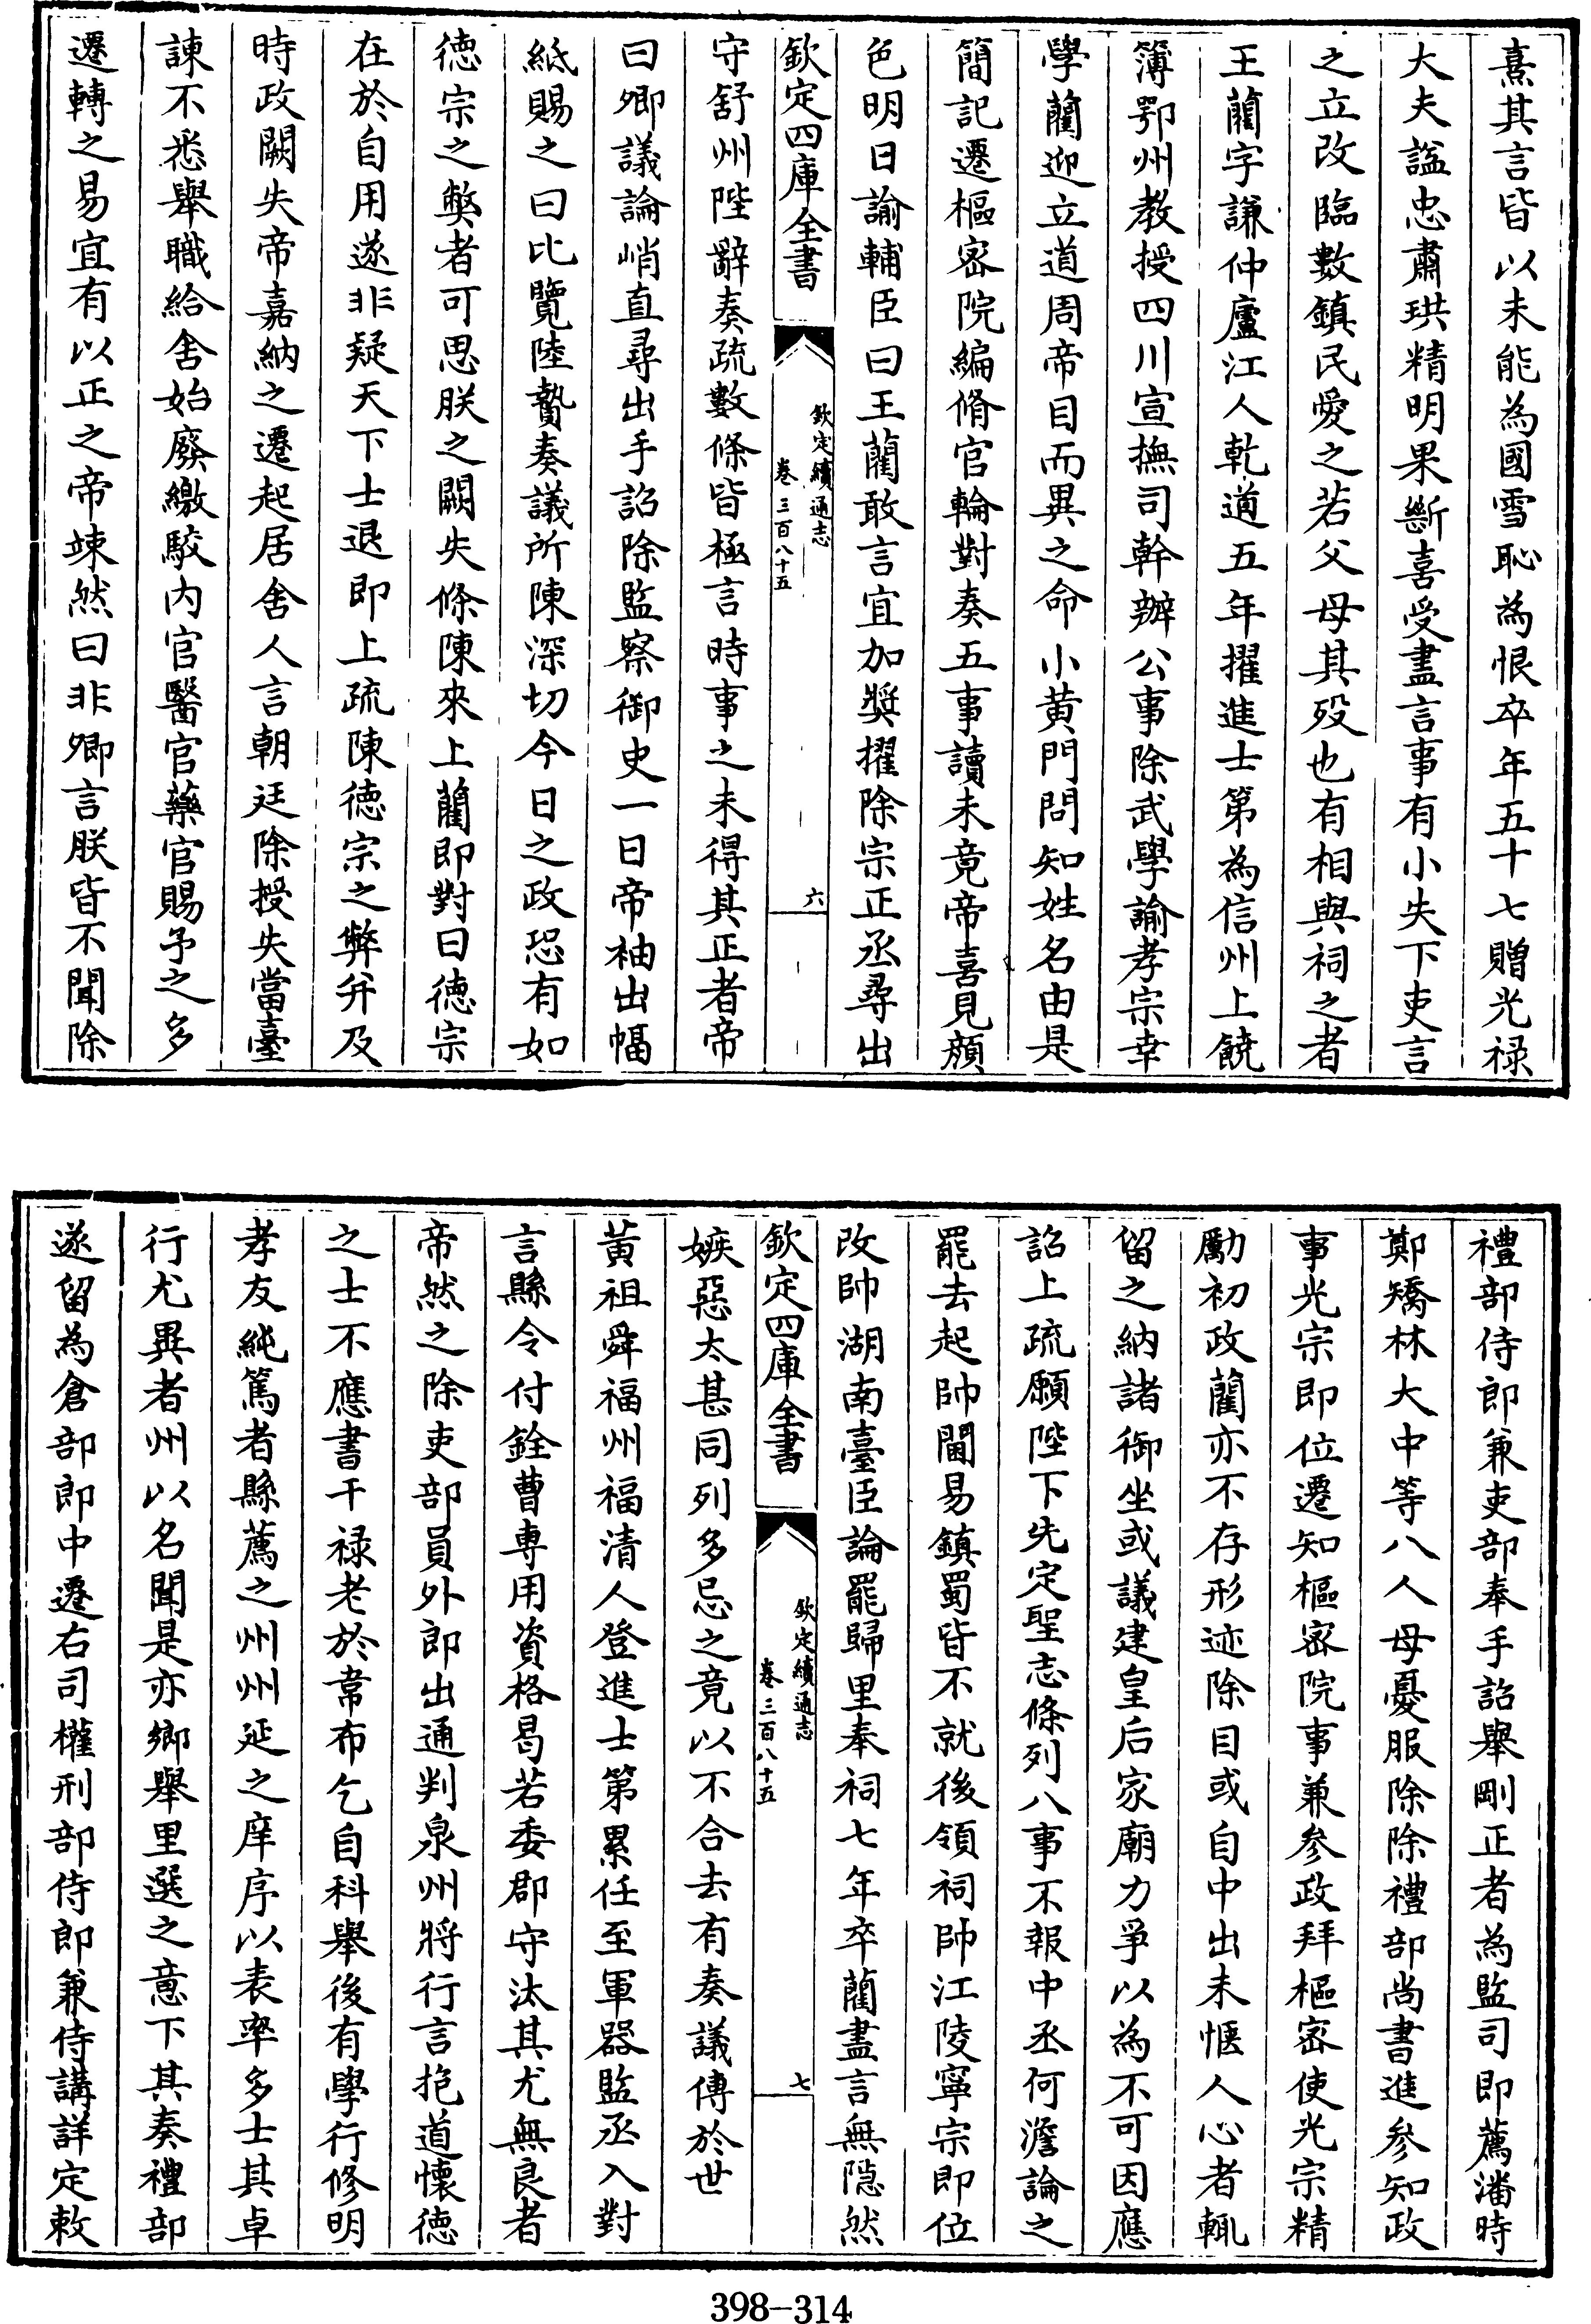 熹其言皆以未能為國雪恥為恨卒年五十七贈光禄
大夫諡忠肅珙精明果斷喜受盡言事有小失下吏言
之立改臨數鎮民愛之若父母其殁也有相與祠之者
王藺字謙仲廬江人乾道五年擢進士第為信州上饒
簿鄂州教授四川宣撫司幹辦公事除武學諭孝宗幸
學藺迎立道周帝目而異之命小黄門問知姓名由是
簡記遷樞宻院編脩官輪對奏五事讀未竟帝喜見顔
色明日諭輔臣曰王藺敢言宜加奨擢除宗正丞尋出
欽定四庫全書
欽定續通志
卷三百八十五
六
守舒州陛辭奏疏數條皆極言時事之未得其正者帝
曰卿議論峭直尋出手詔除監察御史一日帝袖出幅
紙賜之曰比覽陸贄奏議所陳深切今日之政恐有如
德宗之獘者可思朕之闕失條陳來上藺即對曰德宗
在於自用遂非疑天下士退即上疏陳德宗之弊并及
時政闕失帝嘉納之遷起居舍人言朝廷除授失當臺
諫不悉舉職給舍始廢繳駮内官醫官藥官賜予之多
遷轉之易宜有以正之帝竦然曰非卿言朕皆不聞除
禮部侍郎兼吏部奉手詔舉剛正者為監司即薦潘時
鄭矯林大中等八人母憂服除除禮部尚書進参知政
事光宗即位遷知樞宻院事兼参政拜樞宻使光宗精
勵初政藺亦不存形迹除目或自中出未愜人心者輒
留之納諸御坐或議建皇后家廟力爭以為不可因應
詔上疏願陛下先定聖志條列八事不報中丞何澹論之
罷去起帥閫易鎮蜀皆不就後領祠帥江陵寧宗即位
改帥湖南臺臣論罷歸里奉祠七年卒藺盡言無隠然
欽定四庫全書
欽定續通志
卷三百八十五
七
嫉惡太甚同列多忌之竟以不合去有奏議傳於世
黄祖舜福州福清人登進士第累任至軍器監丞入對
言縣令付銓曹専用資格曷若委郡守汰其尤無良者
帝然之除吏部員外郎出通判泉州將行言抱道懷德
之士不應書干禄老於韋布乞自科舉後有學行修明
孝友純篤者縣薦之州州延之庠序以表率多士其卓
行尤異者州以名聞是亦鄉舉里選之意下其奏禮部
遂留為倉部郎中遷右司權刑部侍郎兼侍講詳定敕
398-314